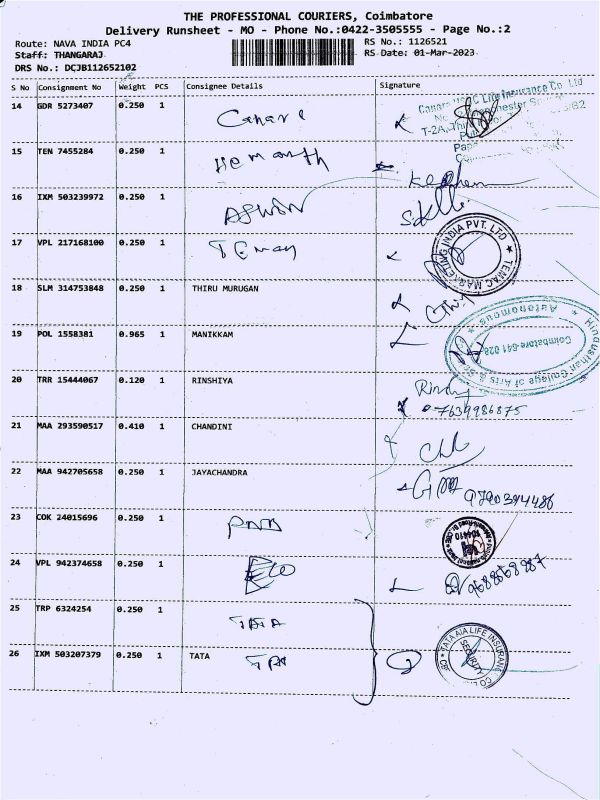 THE PROFESSIONAL COURIERS, Coimbatore
Delivery Runsheet - MO - Phone No.:0422-3505555 - Page No.:2
Route: NAVA INDIA PC4
RS No.: 1126521
Staff: THANGARAJ
RS Date: 01-Mar-2023
DRS No.: DCJB112652102
S No Consignment No Weight PCS Consignee Details Signature
14 GDR 5273407 0.250 1 Canara
15 TEN 7455284 0.250 1 Hemanth
16 IXM 503239972 0.250 1 ASWIN
17 VPL 217168100 0.250 1
TEMAC MARKETING INDIA PVT. LTD
18 SLM 314753848 0.250 1 THIRU MURUGAN
19 POL 1558381 0.965 1 MANIKKAM
Hindusthan College of Arts &
Autonomous
Coimbatore-641 028
20 TRR 15444067 0.120 1 RINSHIYA
7639986875
21 MAA 293590517 0.410 1 CHANDINI
22 MAA 942705658 0.250 1 JAYACHANDRA
23 COK 24015696 0.250 1 PNB
24 VPL 942374658 0.250 1
25 TRP 6324254 0.250 1 TATA
26 IXM 503207379 0.250 1 TATA
TATA AIA LIFE INSURANCE CO LTD
SECURITY